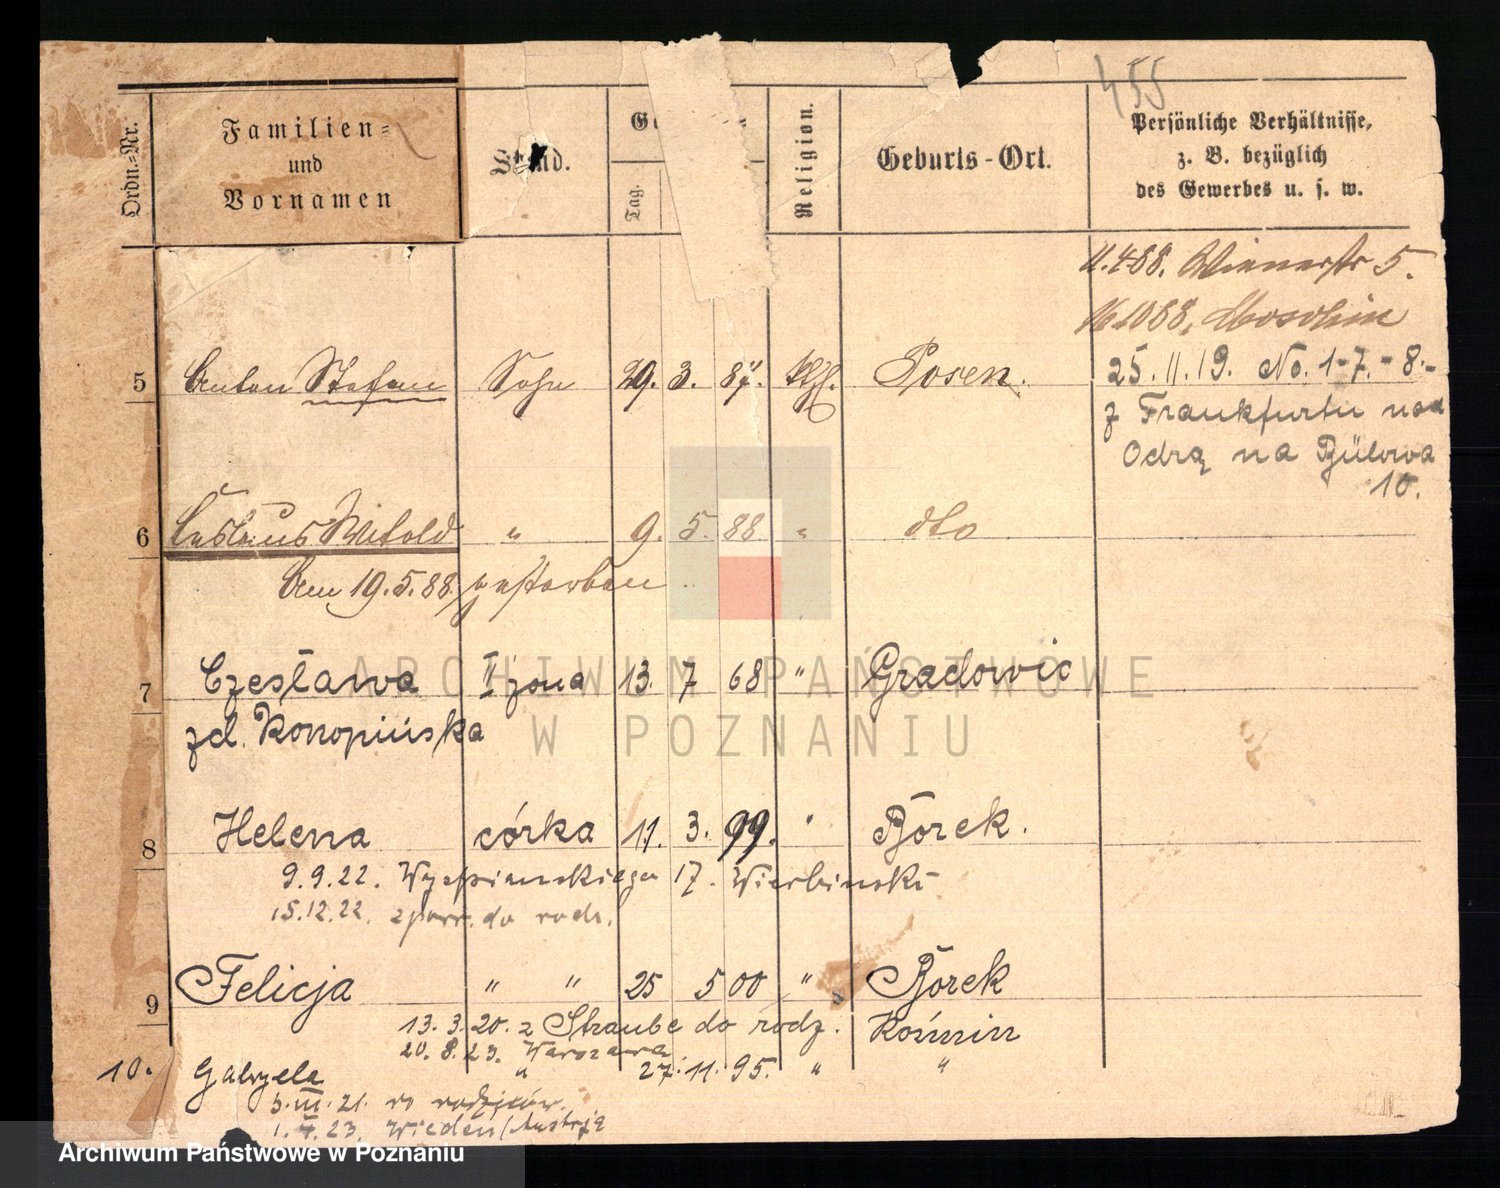 455
Ordn.-Nr.
Familien-
und
Vornamen
Stand.
Tag.
Religion.
Geburts-Ort.
Persönliche Verhältnisse,
z. B. bezüglich
des Gewerbes u. s. w.
11.4.88. Wienerstr 5.
16.10.88. Moschin
5 Anton Stefan Sohn 29. 3. 87. kath. Posen.
25.II.19. No. 1-7.-8.-
z Frankfurtu nad
Odrą na Bülowa
10.
6 Ceslaus Witold " 9. 5. 88. " dto
Am 19.5.88 gestorben
7 Czesława II żona 13. 7 68 " Gradowic
zd. Konopińska
8 Helena córka 11. 3. 99. " Borek.
9.9.22. Wyspianskiego 17. Wierbinski
15.12.22. z powr. do rodz.
9 Felicja " " 25 5 00 " Borek
13.3.20. z Straube do rodz. Koźmin
20.8.23. Warszawa
10. Gabryela " 27. 11. 95. " "
3.III.21. do rodziców
1.V.23. Wieden/Austrja
ARCHIWUM PAŃSTWOWE
W POZNANIU
Archiwum Państwowe w Poznaniu